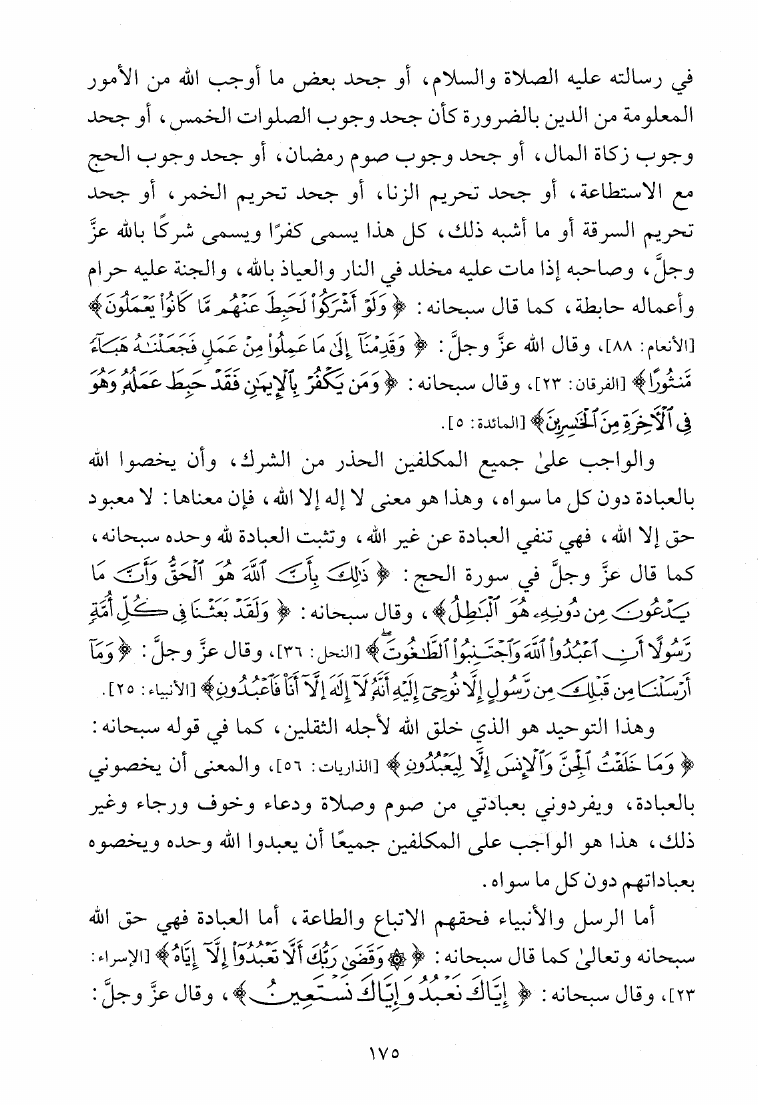 في رسالته عليه الصلاة والسلام، أو جحد بعض ما أوجب الله من الأمور
المعلومة من الدين بالضرورة كأن جحد وجوب الصلوات الخمس، أو جحد
وجوب زكاة المال، أو جحد وجوب صوم رمضان، أو جحد وجوب الحج
مع الاستطاعة، أو جحد تحريم الزنا، أو جحد تحريم الخمر، أو جحد
تحريم السرقة أو ما أشبه ذلك، كل هذا يسمى كفرًا ويسمى شركًا بالله عزَّ
وجلَّ، وصاحبه إذا مات عليه مخلد في النار والعياذ بالله، والجنة عليه حرام
وأعماله حابطة، كما قال سبحانه: ﴿ وَلَوْ أَشْرَكُوا۟ لَحَبِطَ عَنْهُم مَّا كَانُوا۟ يَعْمَلُونَ ﴾
[الأنعام: ٨٨]، وقال الله عزَّ وجلَّ: ﴿ وَقَدِمْنَآ إِلَىٰ مَا عَمِلُوا۟ مِنْ عَمَلٍ فَجَعَلْنَـٰهُ هَبَآءً
مَّنثُورًا ﴾ [الفرقان: ٢٣]، وقال سبحانه: ﴿ وَمَن يَكْفُرْ بِٱلْإِيمَـٰنِ فَقَدْ حَبِطَ عَمَلُهُۥ وَهُوَ
فِى ٱلْـَٔاخِرَةِ مِنَ ٱلْخَـٰسِرِينَ ﴾ [المائدة: ٥].
والواجب علىٰ جميع المكلفين الحذر من الشرك، وأن يخصوا الله
بالعبادة دون كل ما سواه، وهذا هو معنى لا إله إلا الله، فإن معناها: لا معبود
حق إلا الله، فهي تنفي العبادة عن غير الله، وتثبت العبادة لله وحده سبحانه،
كما قال عزَّ وجلَّ في سورة الحج: ﴿ ذَٰلِكَ بِأَنَّ ٱللَّهَ هُوَ ٱلْحَقُّ وَأَنَّ مَا
يَدْعُونَ مِن دُونِهِۦ هُوَ ٱلْبَـٰطِلُ ﴾، وقال سبحانه: ﴿ وَلَقَدْ بَعَثْنَا فِى كُلِّ أُمَّةٍ
رَّسُولًا أَنِ ٱعْبُدُوا۟ ٱللَّهَ وَٱجْتَنِبُوا۟ ٱلطَّـٰغُوتَ ۖ ﴾ [النحل: ٣٦]، وقال عزَّ وجلَّ: ﴿ وَمَآ
أَرْسَلْنَا مِن قَبْلِكَ مِن رَّسُولٍ إِلَّا نُوحِىٓ إِلَيْهِ أَنَّهُۥ لَآ إِلَـٰهَ إِلَّآ أَنَا۠ فَٱعْبُدُونِ ﴾ [الأنبياء: ٢٥].
وهذا التوحيد هو الذي خلق الله لأجله الثقلين، كما في قوله سبحانه:
﴿ وَمَا خَلَقْتُ ٱلْجِنَّ وَٱلْإِنسَ إِلَّا لِيَعْبُدُونِ ﴾ [الذاريات: ٥٦]، والمعنى أن يخصوني
بالعبادة، ويفردوني بعبادتي من صوم وصلاة ودعاء وخوف ورجاء وغير
ذلك، هذا هو الواجب على المكلفين جميعًا أن يعبدوا الله وحده ويخصوه
بعباداتهم دون كل ما سواه.
أما الرسل والأنبياء فحقهم الاتباع والطاعة، أما العبادة فهي حق الله
سبحانه وتعالىٰ كما قال سبحانه: ﴿ ۞ وَقَضَىٰ رَبُّكَ أَلَّا تَعْبُدُوٓا۟ إِلَّآ إِيَّاهُ ﴾ [الإسراء:
٢٣]، وقال سبحانه: ﴿ إِيَّاكَ نَعْبُدُ وَإِيَّاكَ نَسْتَعِينُ ﴾، وقال عزَّ وجلَّ:
١٧٥